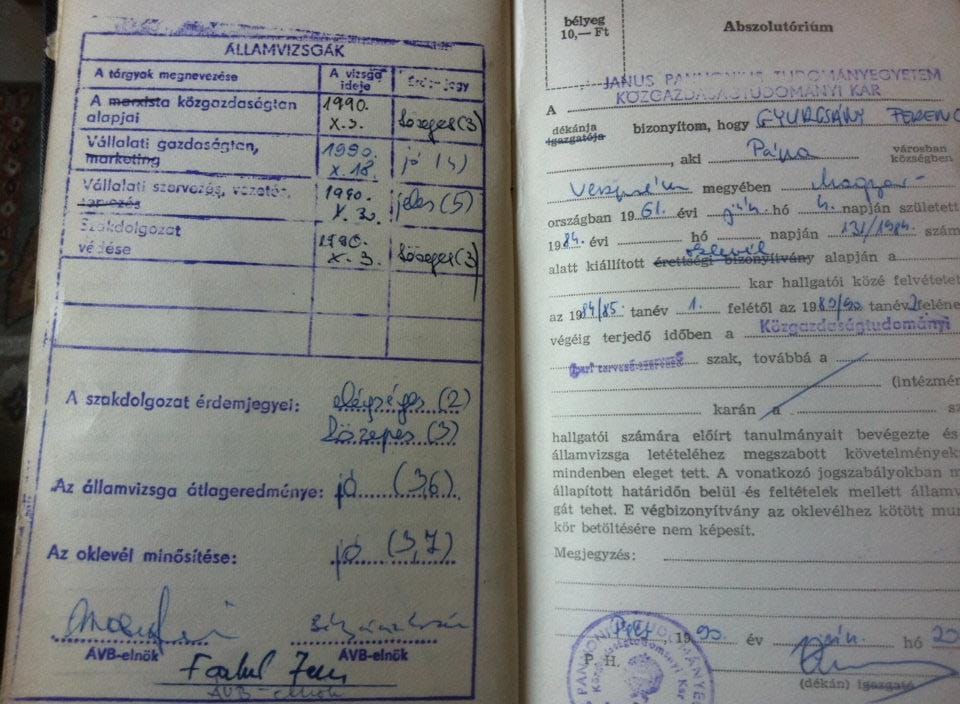 ÁLLAMVIZSGÁK
A tárgyak megnevezése A vizsga ideje Érdemjegy
A marxista közgazdaságtan alapjai 1990. X.3. közepes (3)
Vállalati gazdaságtan, marketing 1990. X.18. jó (4)
Vállalati szervezés, vezetés, tervezés 1990. X.3. jeles (5)
Szakdolgozat védése 1990. X.3. közepes (3)
A szakdolgozat érdemjegyei: elégséges (2)
közepes (3)
Az államvizsga átlageredménye: jó (3,6)
Az oklevél minősítése: jó (3,7)
ÁVB-elnök ÁVB-elnök
ÁVB-elnök
bélyeg
10,— Ft
Abszolutórium
JANUS PANNONIUS TUDOMÁNYEGYETEM
KÖZGAZDASÁGTUDOMÁNYI KAR
A
dékánja
igazgatója bizonyítom, hogy GYURCSÁNY FERENC
, aki Pápa városban
községben
Veszprém megyében Magyar-
országban 1961. évi jún. hó 4. napján született
1984. évi hó napján 131/1984. szám
alatt kiállított érettségi bizonyítvány oklevél alapján a
kar hallgatói közé felvétetet
az 1984/85. tanév 1. felétől az 1989/90. tanév 2 feléne
végéig terjedő időben a Közgazdaságtudományi
szak, továbbá a
(intézmér
karán a sz
hallgatói számára előírt tanulmányait bevégezte és
államvizsga letételéhez megszabott követelmények
mindenben eleget tett. A vonatkozó jogszabályokban m
állapított határidőn belül és feltételek mellett államv
gát tehet. E végbizonyítvány az oklevélhez kötött mun
kör betöltésére nem képesít.
Megjegyzés:
Pécs, 1990. év jún. hó 20
P. H.
(dékán) igazgató
PANNONIUS TUDOMÁNYEGYE
Közgazdaságtudományi Kar